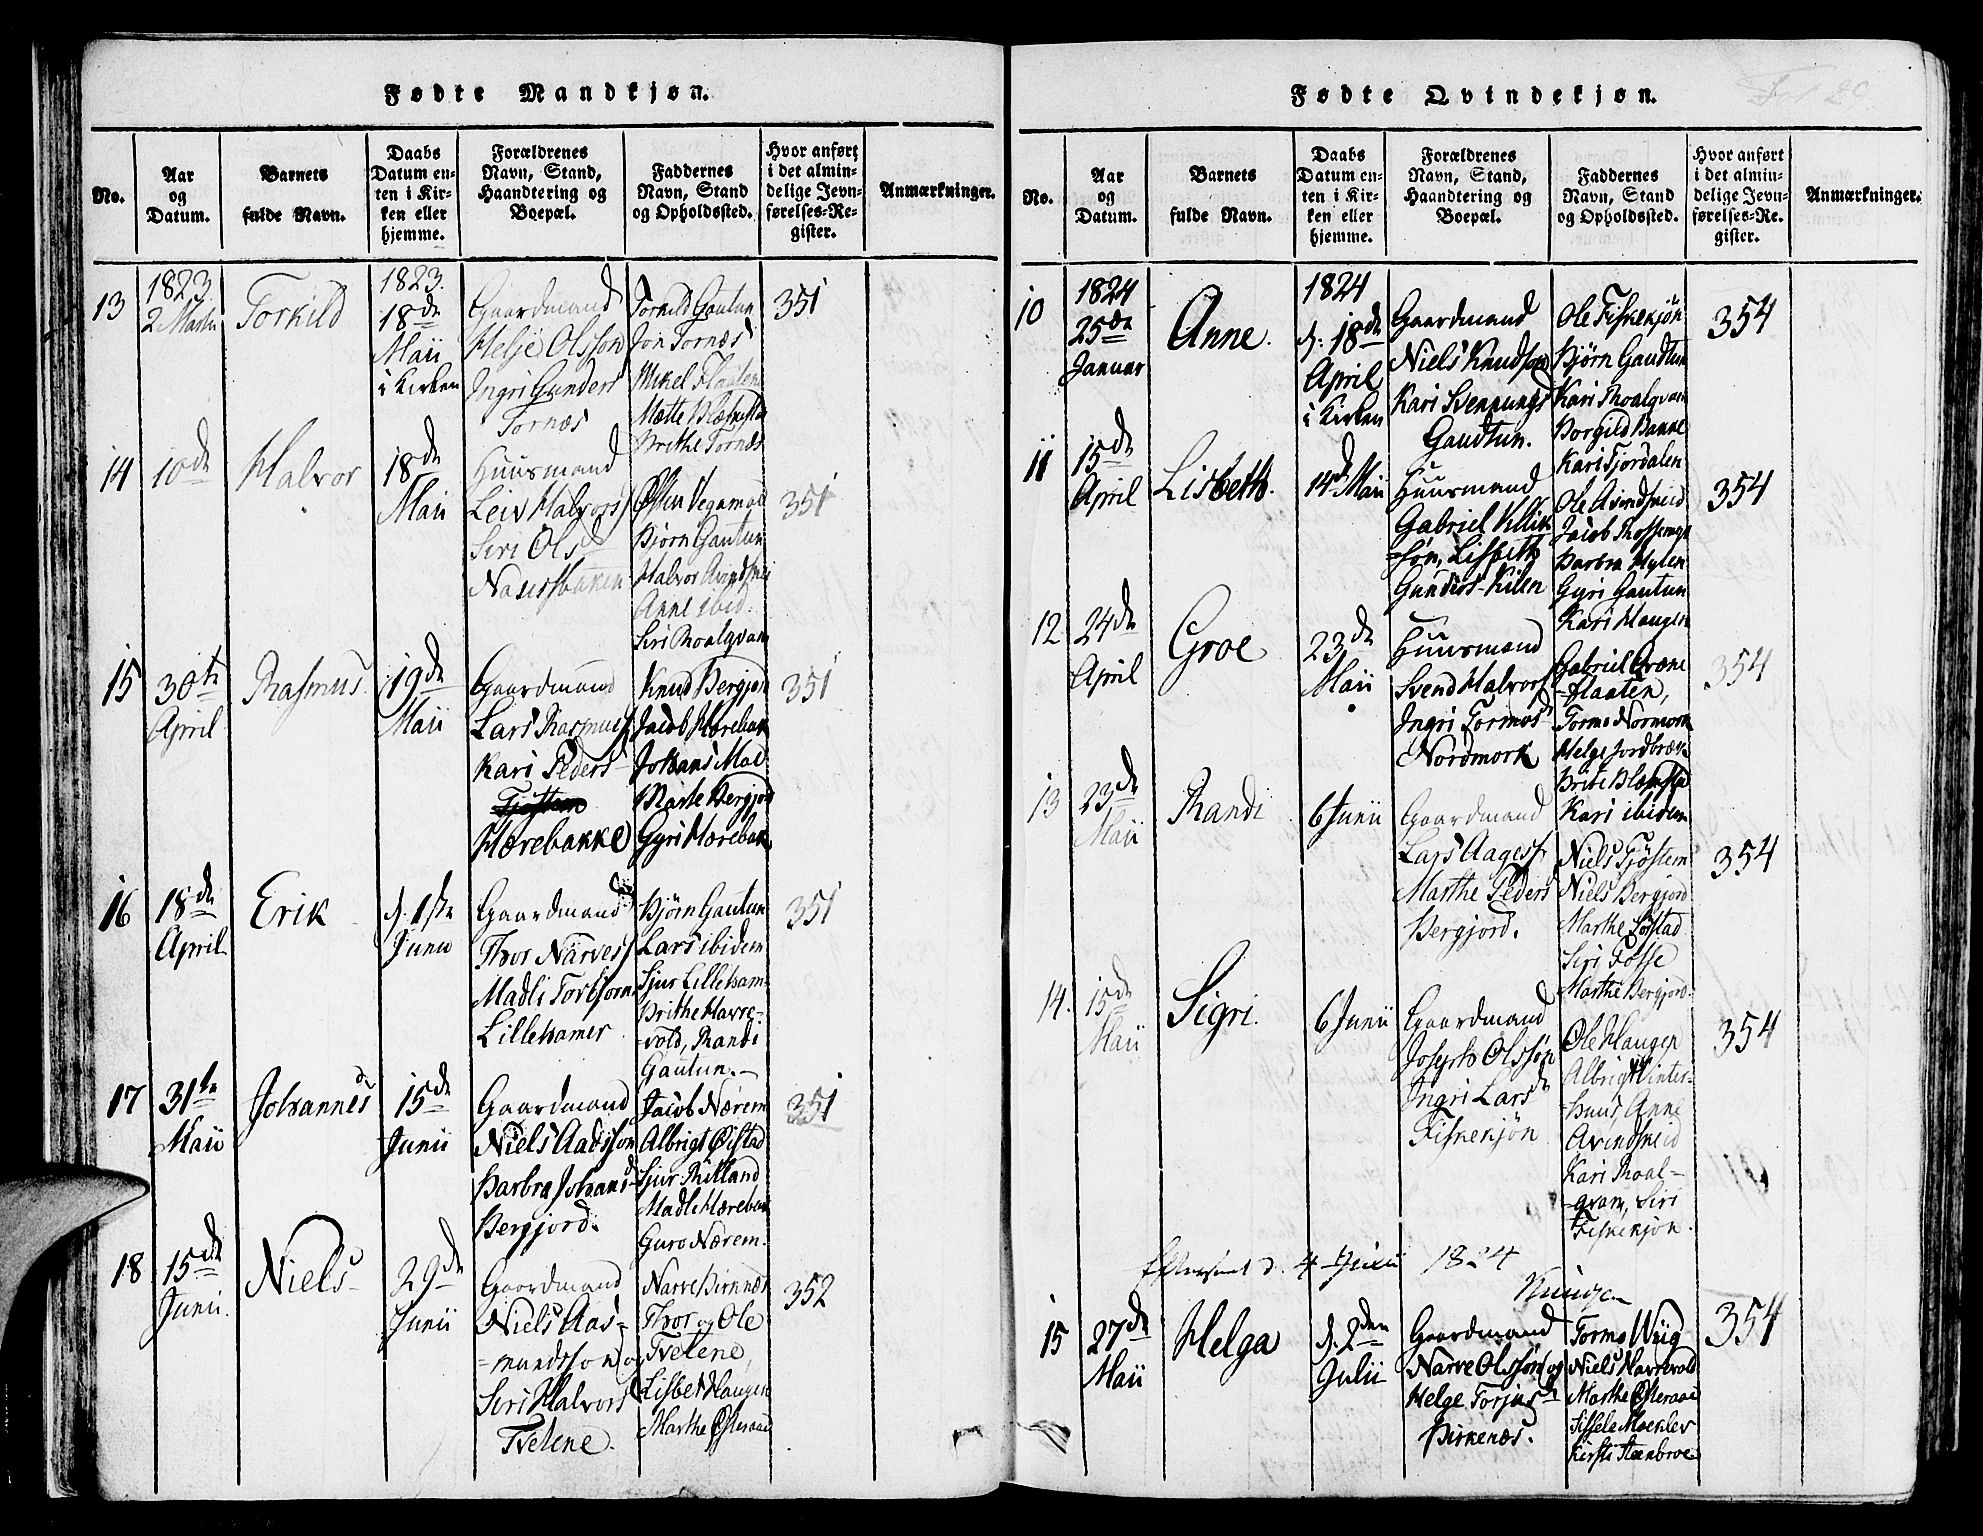 Fødte Mandkjøn.
No.
Aar
og
Datum.
Barnets
fulde Navn.
Daabs
Datum en-
ten i Kir-
ken eller
hjemme.
Forældrenes
Navn, Stand,
Haandtering og
Boepæl.
Faddernes
Navn, Stand
og Opholdssted.
Hvor anført
i det almin-
delige Jevn-
førelses-Re-
gister.
Anmærkninger.
13
1823
2 Martii
Torkild
1823.
18de
Maii
i Kirken
Gaardmand
Helje Olsson
Ingri Gunders
Tornæs
Torkild Gautun
Jon Tornæs
Mikel Flaaten
Mætte
Brithe Tornæs
351
14
10de
Halvor
18de
Maii
Huusmand
Leiv Halvors
Siri Ols
Østen Vegamod
Bjørn Gautun
Halvor
Anne ibid.
Siri Roalqvam
351
15
30te
April
Rasmus
19de
Maii
Gaardmand
Lars Rasmus
Kari Peders
Tjøstem
Hærebakke
Knud Bergjor
Jacob Hærebak
Johans Moe
Marte Bergjord
Gyri Hærebak
351
16
18de
April
Erik
d. 1ste
Junii
Gaardmand
Thor Narves
Madli
Lillehamer
Bjørn Gautun
Lars ibidem
Sjur Lilleham-
Brithe Havre-
vold, Randi
Gautun.
351
17
31te
Maii
Johannes
15de
Junii
Gaardmand
Niels Aadsson
Barbra Johans
Bergjord.
Jacob Nærem
Albrigt Øistad
Sjur Rilland
Madle Hærebak
Guro Nærem.
351
18
15de
Junii.
Niels
29de
Junii
Gaardmand
Niels Aas-
mundsson og
Siri Halvors
Tvetene.
Narve Birknæs
Thor og Ole
Tvetene,
Lisbet Haugen
Marthe Østeraae
352
Fødte Qvindekjøn.
No.
Aar
og
Datum.
Barnets
fulde Navn.
Daabs
Datum en-
ten i Kir-
ken eller
hjemme.
Forældrenes
Navn, Stand,
Haandtering og
Boepæl.
Faddernes
Navn, Stand
og Opholdssted.
Hvor anført
i det almin-
delige Jevn-
førelses-Re-
gister.
Anmærkninger.
10
1824
25de
Januar
Anne.
1824
d. 18de
April
i Kirken
Gaardmand
Niels Knudson
Kari Svennungs
Gaudtun.
Ole Fiskekjøn
Bjørn Gaudtun
Kari Roalqvam
Borgild Bakke
Kari Fjordalen
354
11
15de
April
Lisbeth.
14de Maii
Huusmand
Gabriel
søn, Lisbeth
Gunders Kilen
Ole
Jacob
Barbra Hylen
Gyri Gautun
Kari Haugen
354
12
24de
April
Groe
23de
Maii
Huusmand
Svend Halvors
Ingri Tormos
Nordmork
Gabriel Grøne
-flaaten,
Tormo Normork
Helge Jordbræk
Brite
Kari ibidem
354
13
23de
Maii
Randi
6 Junii
Gaardmand
Lars Aages
Marthe Peders
Bergjord.
Niels Tjøstem
Niels Bergjord
Marthe Søstad
Siri Fosse
Marthe Bergjord
354
14.
15de
Maii
Sigri.
6 Junii
Gaardmand
Joseph Olssøn
Ingri Lars
Fiskekjøn
Ole Haugen
Albrigt Vinter-
-huus, Anne
Avindsneid
Kari Roal-
-qvam, Siri
Fiskekjøn.
354
d. 4 Junii 1824
15
27de
Maii
Helga
d. 2den
Julii
Gaardmand
Narve Olssøn og
Helge Torjus
Birkenæs.
Tormo Wiig
Niels Havrevold
Marthe Østeraae
Sissele Moeklev
Kirsti Steenbroe
354